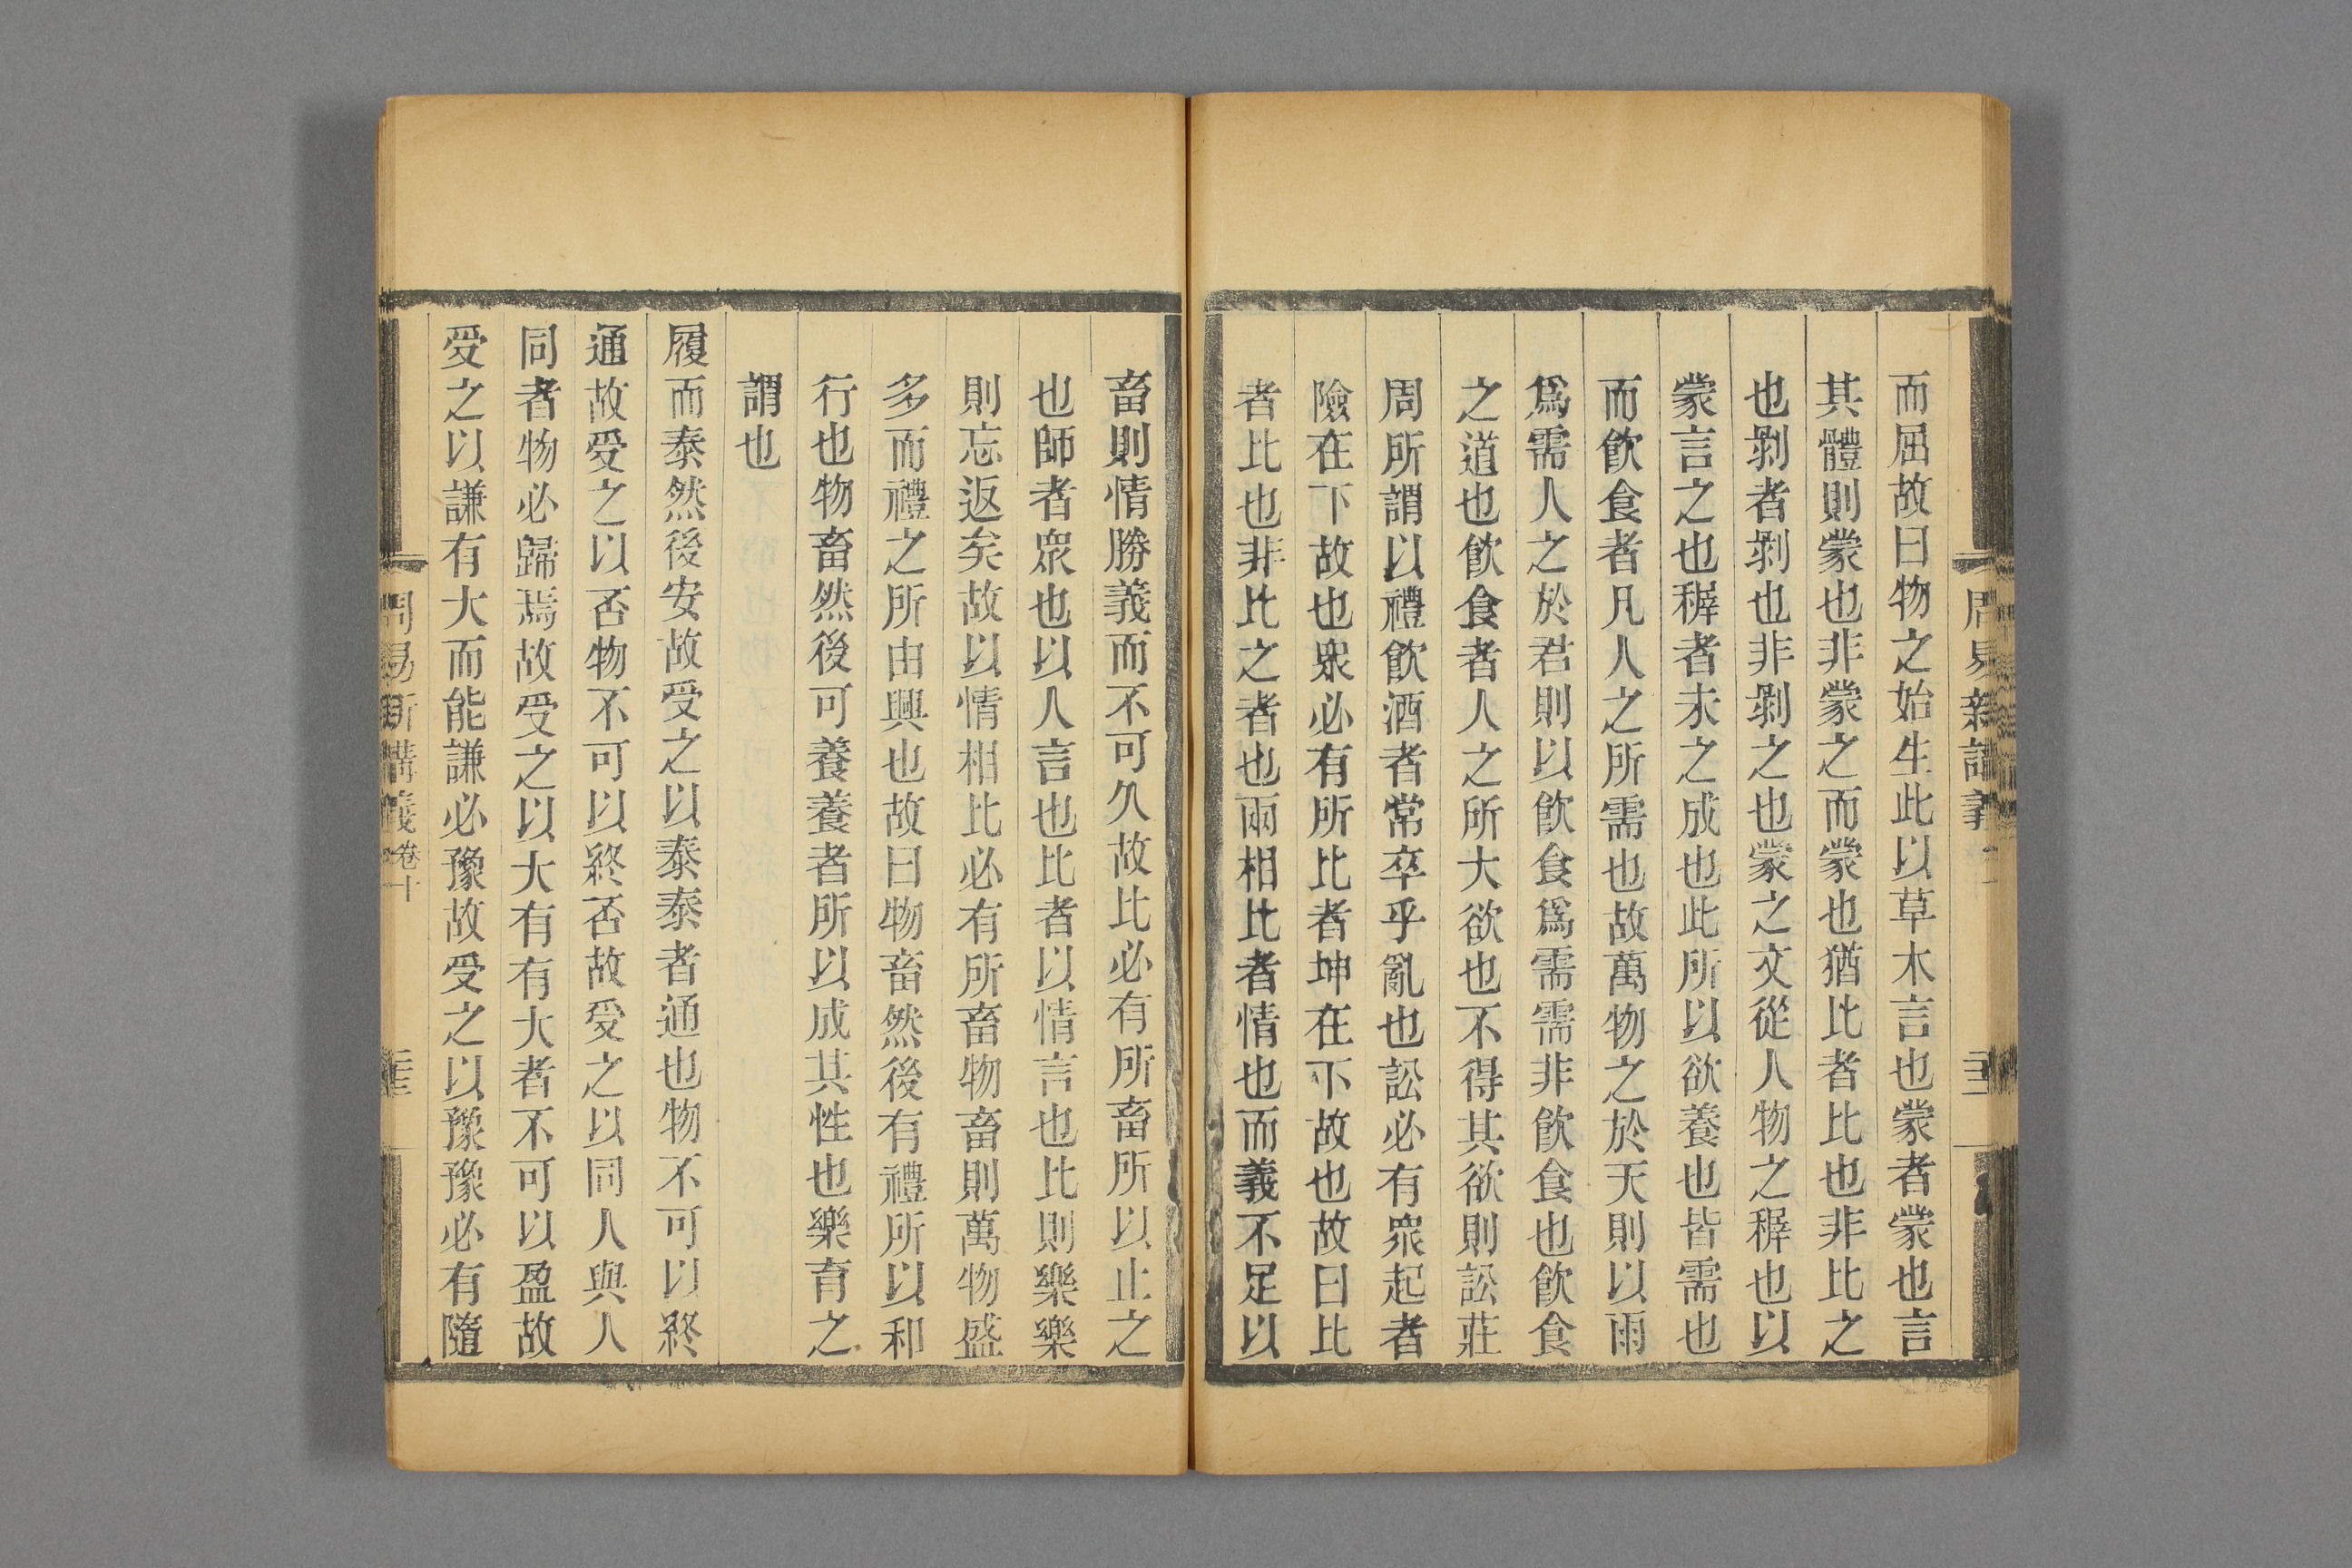 而屈故曰物之始生此以草木言也蒙者蒙也言
其體則蒙也非蒙之而蒙也猶比者比也非比之
也剝者剝也非剝之也蒙之文從人物之穉也以
蒙言之也穉者未之成也此所以欲養也皆需也
而飲食者凡人之所需也故萬物之於天則以雨
爲需人之於君則以飲食爲需需非飲食也飲食
之道也飲食者人之所大欲也不得其欲則訟莊
周所謂以禮飲酒者常卒乎亂也訟必有眾起者
險在下故也眾必有所比者坤在下故也故曰比
者比也非比之者也兩相比者情也而義不足以
畜則情勝義而不可久故比必有所畜所以止之
也師者眾也以人言也比者以情言也比則樂樂
則忘返矣故以情相比必有所畜物畜則萬物盛
多而禮之所由興也故曰物畜然後有禮所以和
行也物畜然後可養養者所以成其性也樂育之
謂也
履而泰然後安故受之以泰泰者通也物不可以終
通故受之以否物不可以終否故受之以同人與人
同者物必歸焉故受之以大有有大者不可以盈故
受之以謙有大而能謙必豫故受之以豫豫必有隨
周易新講義卷十